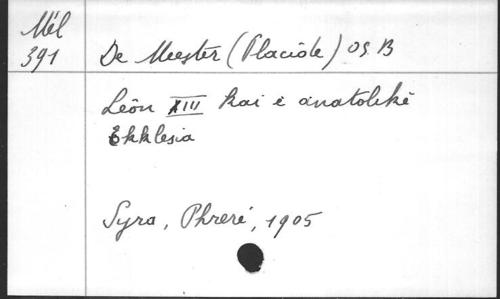 Mél
391
De Meester (Placide) OSB
Léôn XIII kai ê anatolikê
Ekklesia
Syra, Phreré, 1905